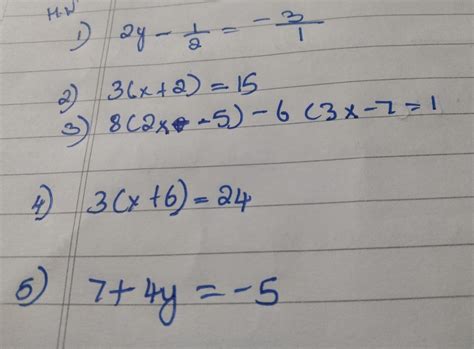 H.W
1) 2y - 1/2 = -3/1
2) 3(x+2) = 15
3) 8(2x - 5) - 6 (3x - 7 = 1
4) 3(x+6) = 24
5) 7 + 4y = -5